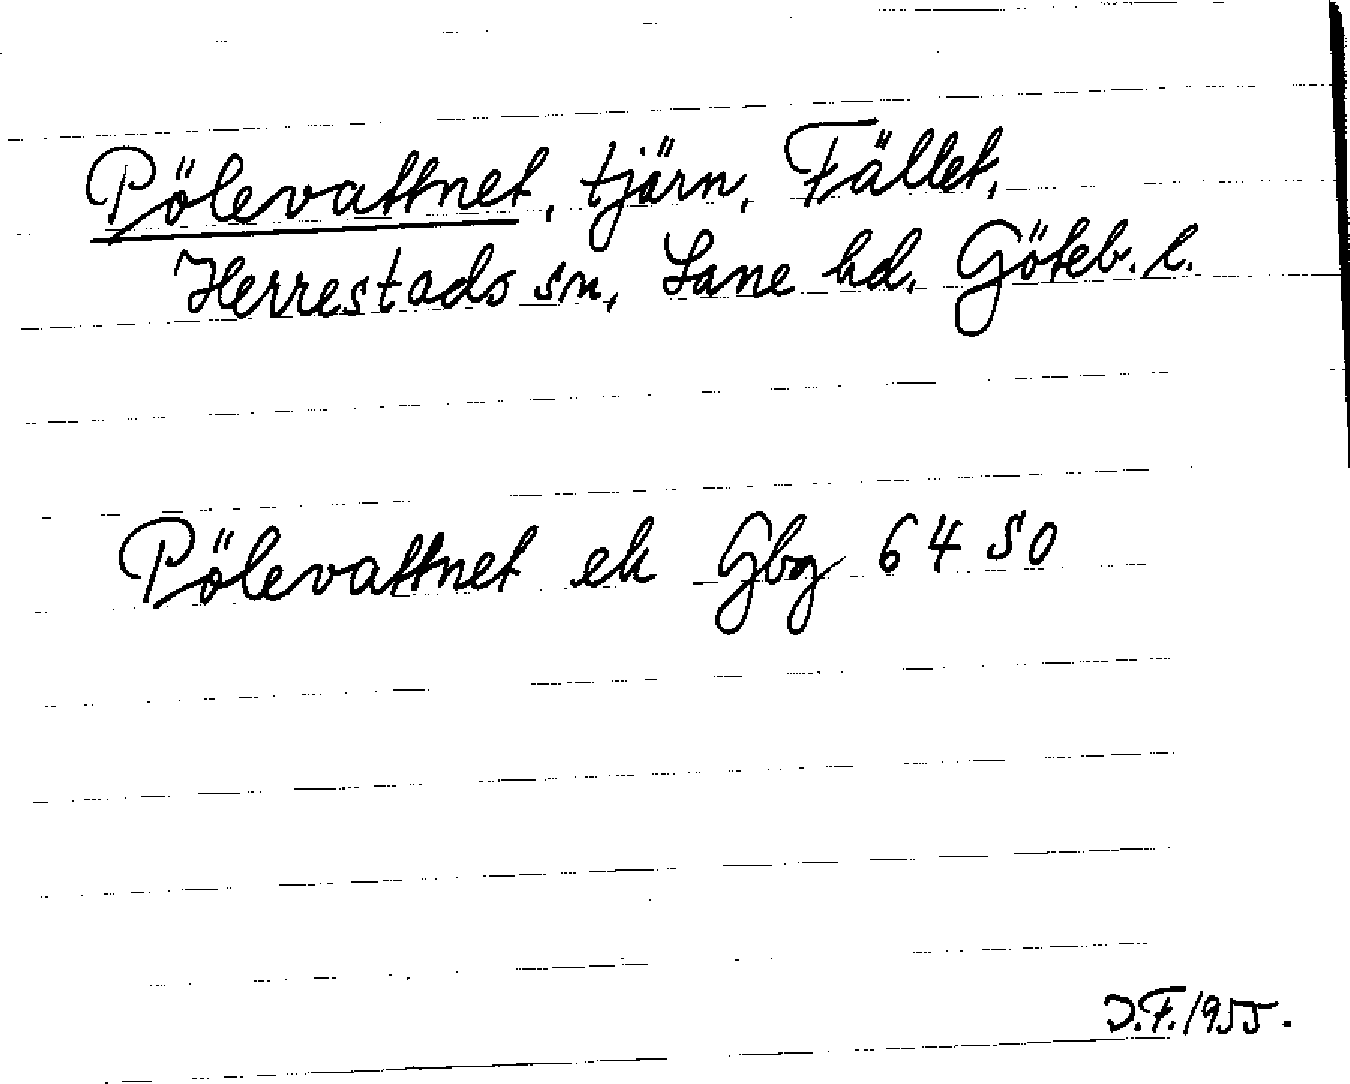 Pölevattnet, tjärn, Fället,
Herrestads sn, Lane hd. Göteb. l.
Pölevattnet ek Gbg 6450
J.F. 1955.